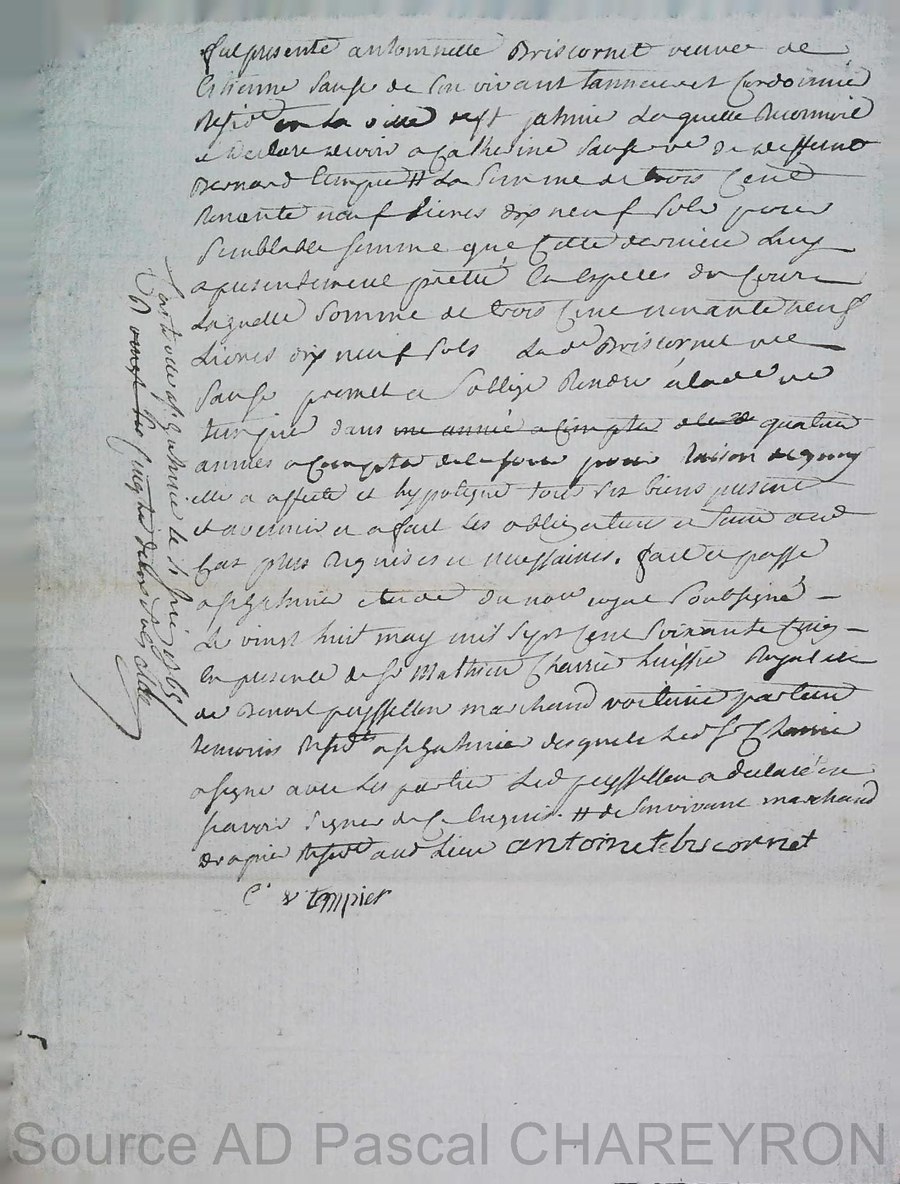 fut presente antoinette Briscornet veuve de
Etienne Sause de son vivant tanneur et Cordonnié
Residt en la ville de st jatmie Laquelle Reconnoit
et declare devoir a Catherine Sause ve de deffunt
Bernard # La Somme de trois Cent
nonante neuf Livres dix neuf Sols pour
Semblable somme que Cette derniere Luy
a presentement preté En especes du Cour
Laquelle Somme de trois Cent nonante neuf
Livres dix neuf Sols La de Briscornet ve
Sause promet et Soblige Rendre a lade ve
dans une année a Compter quatre
années a Compter de ce jour pour Raison de quoy
elle a affecté et hypotequé tous Ses biens present
et avenir et a fait Les obligations et
Cas plus Requises et necessaires. fait et passé
a st jatmie etude du nore Royal Soubsigné
Le vingt huit may mil Sept Cent Soixante Cinq
En presence de Sr Mathieu Charrié huissié Royal et
de Benoit peyssellon marchand voiturié par
temoins Residts a st jatmie desquels Led Sr Charrié
a signé avec Les partie Led peyssellon a declaré ne
scavoir Signer de Ce Enquis. # de Son vivant marchand
drapié Residt aud Lieu antoinete bis cornet
Ct ve tenpier
Controllé a st jatmie le 1er juin 1765
R